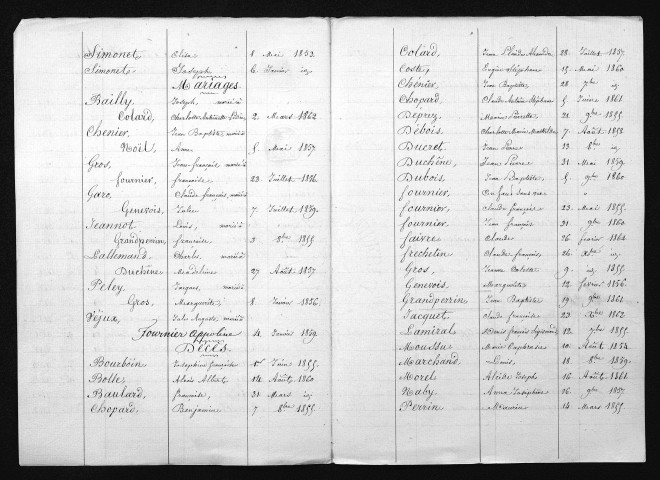 Simonet, Elisa 8 Mai 1853.
Simonet, Joseph 6 Janvier id
Mariages.
Bailly, Joseph, marié à
Colard, Charlotte 2 Mars 1862
Chenier, Jean Baptiste, marié à
Noël, Anne 5 Mai 1857
Gros, Jean français marié à
fournier, françoise 23 Juillet 1856.
Garo, Claude français, marié à
Genevois, Julie 7 Juillet 1859.
Jeannot Louis, marié à
Grandperrin, françoise 3 8bre 1855
Lallemand, Charles, marié à
Duchêne Madeleine 27 Août 1857
Peley, Jacques, marié à
Gros, Marguerite 8 Janvier 1856.
Véjux, Jules Auguste marié à
Fournier Appoline 4 Janvier 1859.
Décès.
Bourboin Josephine françoise 1855.
Bolle, Alexis Albert 14 Août 1860
Baulard, françoise, 31 Mars id
Chopard, Benjamine 7 8bre 1855.
Colard, Jean 28 Juillet 1857.
Coste, Eugène Stéphane 15 Mai 1860
Chénier, Jean Baptiste 28 7bre id
Chopard, Claude Antoine Stéphane 5 Janvr 1861
Deprez, 21 9bre 1855.
Debois, Charlotte Marie 7 Août 1858
Ducret Jean Pierre 13 8bre id
Duchêne, Jean Pierre 31 Mai 1859.
Dubois, Jean Baptiste, 5 9bre 1860
fournier,
fournier, Claude français 23 Mai 1855.
fournier, Jean français 31 9bre 1860
faivre, Claude 26 fevrier 1862
frechelin Claude français, 24 Xbre id
Gros, Jeanne Colette 9 id 1855.
Genevois Marguerite 12 fevrr 1856.
Grandperrin, Jean Baptiste 19 9bre 1861
Jacquet Claude françoise 23 Xbre 1862
Lamiral 12 7bre 1855.
Moussu, Marie Euphrasie 10 Août 1854.
Marchand, Louis 18 8bre 1859.
Morel Alcide Joseph 16 Août 1861.
Naby, Anna Josephine 26 9bre 1857
Perrin, 14 Mars 1855.